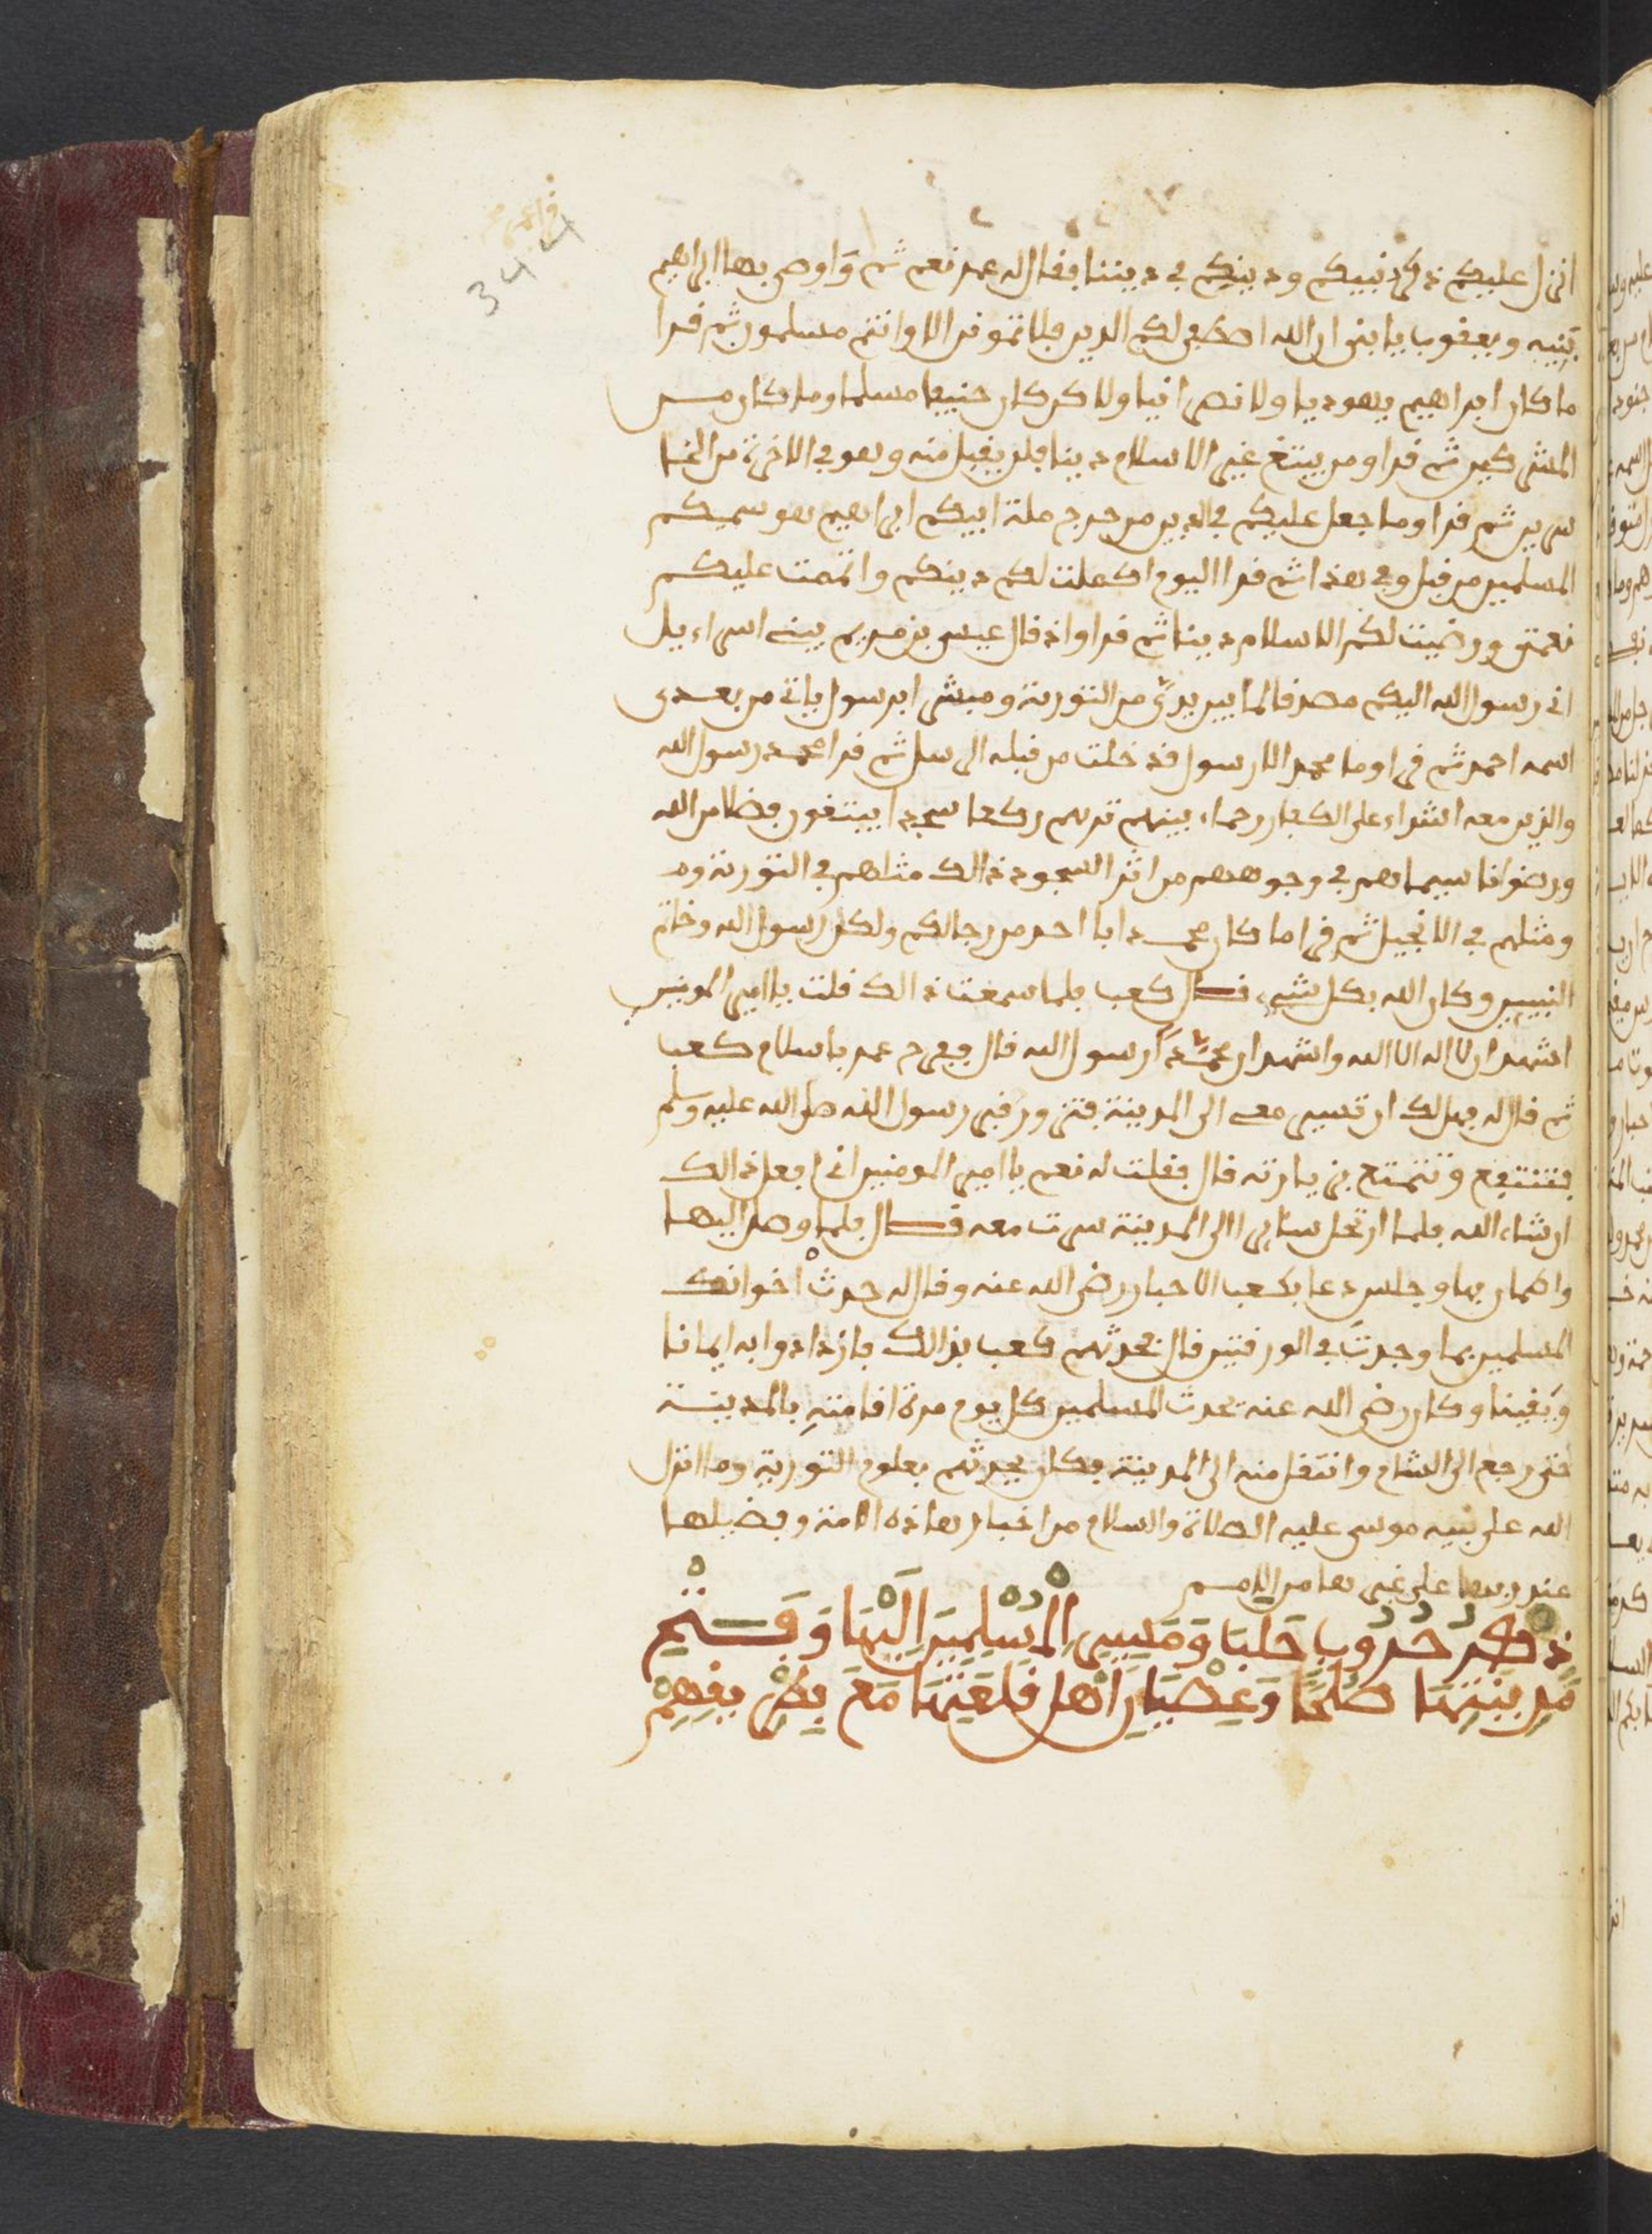 انزل عليكم ذكر نبيكم ودينكم في ديننا فقال له عمر نعم ثم قرا واوصى بها ابراهيم
بنيه ويعقوب يا بني ان الله اصطفى لكم الدين فلا تموتن الا وانتم مسلمون ثم قرا
ما كان ابراهيم يهوديا ولا نصرانيا ولاكن كان حنيفا مسلما وما كان من
المشركين ثم قرا ومن يبتغ غير الاسلام دينا فلن يقبل منه وهو في الاخرة من الخا
سرين ثم قرا وما جعل عليكم في الدين من حرج ملة ابيكم ابراهيم هو سميكم
المسلمين من قبل وفي هذا ثم قرا اليوم اكملت لكم دينكم واتممت عليكم
نعمتي ورضيت لكم الاسلام دينا ثم قرا واذ قال عيسى بن مريم يبنى اسراءيل
اني رسول الله اليكم مصدقا لما بين يدي من التورية ومبشرا برسول ياتي من بعدى
اسمه احمد ثم قرا وما محمد الا رسول قد خلت من قبله الرسل ثم قرا محمد رسول الله
والذين معه اشداء على الكفار رحماء بينهم تريهم ركعا سجدا يبتغون فضلا من الله
ورضوانا سيماهم في وجوههم من اثر السجود ذالك مثلهم في التورية وم
ومثلهم في الانجيل ثم قرا ما كان محمد ابا احد من رجالكم ولكن رسول الله وخاتم
النبيين وكان الله بكل شيء قال كعب فلما سمعت ذالك قلت يا امير المومنين
اشهد ان لا اله الا الله واشهد ان محمدا رسول الله قال ففرح عمر باسلام كعب
ثم قال له فهل لك ان تسير معى الى المدينة فتزور قبر رسول الله صلى الله عليه وسلم
فتنتفع وتتمتع بزيارته قال فقلت له نعم يا امير المومنين اني افعل ذالك
ان شاء الله فلما ارتحل سايرا الى المدينة سرت معه قال فلما وصل اليها
واطمان بها وجلس دعا بكعب الاحبار رضي الله عنه وقال له حدث اخوانك
المسلمين بما وجدت في الورقتين قال فحدثهم كعب بذالك فازدادوا به ايمانا
ويقينا وكان رضي الله عنه يحدث المسلمين كل يوم مدة اقامته بالمدينة
حتى رجع الى الشام وانتقل منه الى المدينة فكان يحدثهم بعلوم التورية وما انزل
الله على نبيه موسى عليه الصلاة والسلام من اخبار هاذه الامة وفضلها
عند ربها على غيرها من الامم
ذِكْرُ حُرُوبِ حَلَبَ وَمَسِيرِ الْمُسْلِمِينَ إِلَيْهَا وَفَتْحِ
مَدِينَتِهَا صُلْحًا وَعِصْيَانِ أَهْلِ قَلْعَتِهَا مَعَ بِطْرِيقِهِمْ
344